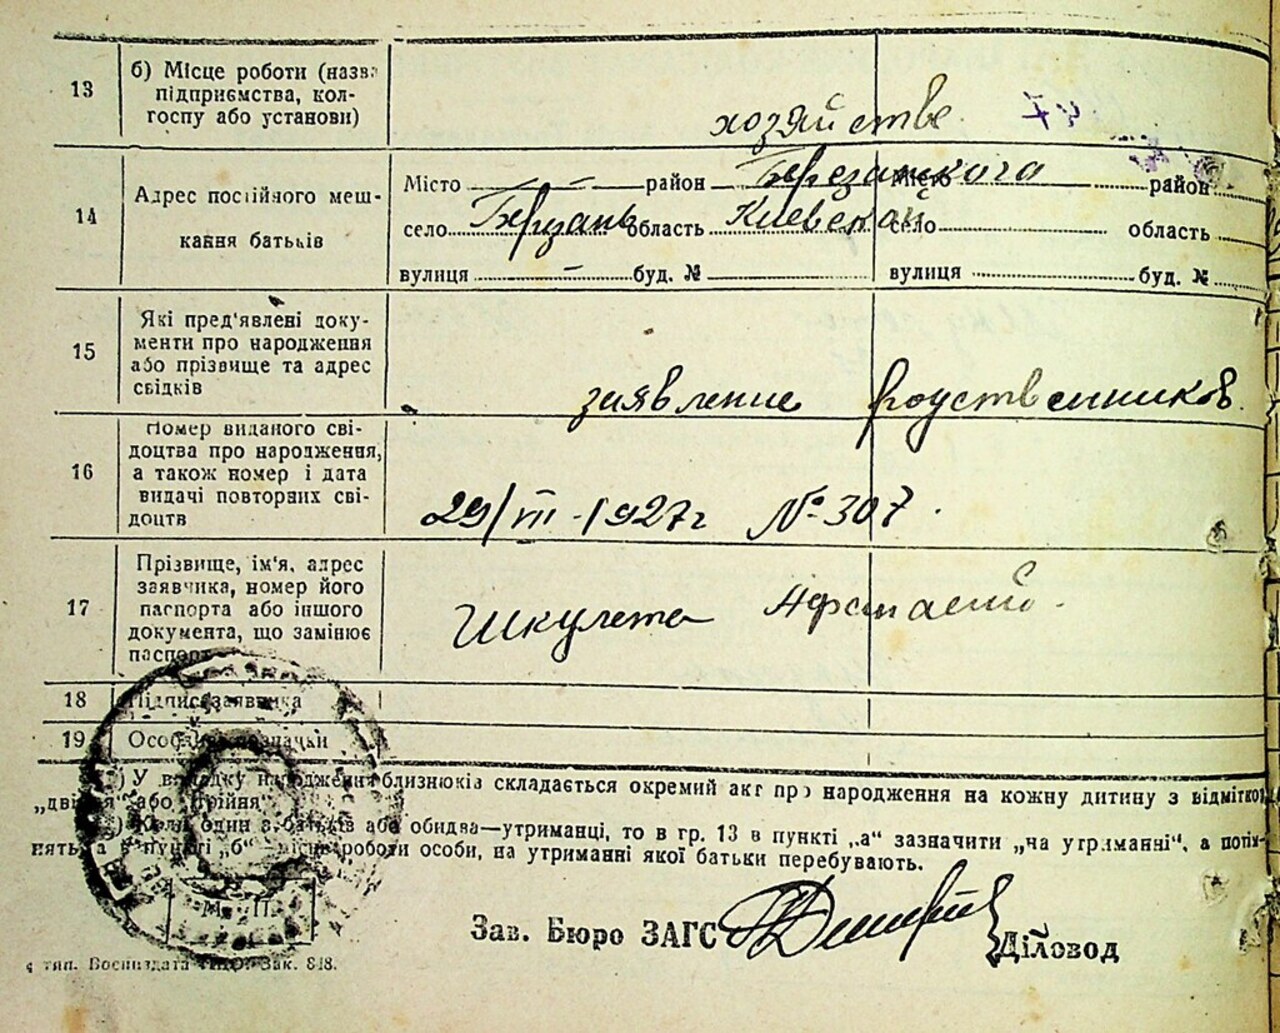 13
б) Місце роботи (назва
підприємства, кол-
госпу або установи)
хозяйстве
14
Адрес постійного меш-
кання батьків
Місто район Березанского Місто район
село Березань область Киевской село область
вулиця – буд. № вулиця буд. №
15
Які пред'явлені доку-
менти про народження
або прізвище та адрес
свідків
заявление родственников
16
Номер виданого сві-
доцтва про народження,
а також номер і дата
видачі повторних сві-
доцтв
29/VII-1927г № 307.
17
Прізвище, ім'я, адрес
заявника, номер його
паспорта або іншого
документа, що замінює
паспорт
Шкулета
18
Підпис заявника
19
Особливі позначки
) У випадку народження близнюків складається окремий акт про народження на кожну дитину з відміткою
„двійня" або „трійня"
) Коли один з батьків або обидва—утриманці, то в гр. 13 в пункті „а" зазначити „на утриманні", а
в пункті „б"—місце роботи особи, на утриманні якої батьки перебувають.
М. П.
Зав. Бюро ЗАГС Діловод
тип. Зак. 848.